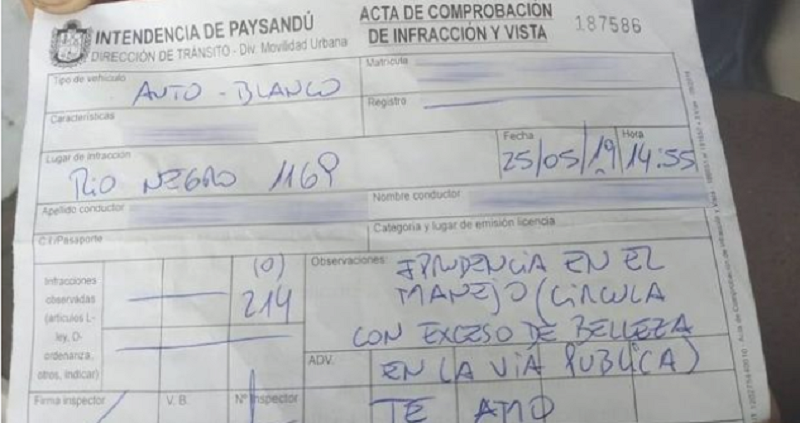 INTENDENCIA DE PAYSANDÚ
DIRECCIÓN DE TRÁNSITO - Div. Movilidad Urbana
ACTA DE COMPROBACIÓN
DE INFRACCIÓN Y VISTA
187586
Tipo de vehículo
AUTO - BLANCO
Matrícula
Características
Registro
Lugar de infracción
RIO NEGRO 1169
Fecha
25/05/19
Hora
14:55
Apellido conductor
Nombre conductor
C.I/Pasaporte
Categoría y lugar de emisión licencia
Infracciones
observadas
(artículos L-
ley, D-
ordenanza,
otros, indicar)
(0)
214
Observaciones:
IPRUDENCIA EN EL
MANEJO (CIRCULA
CON EXCESO DE BELLEZA
EN LA VIA PUBLICA)
TE AMO
ADV.
Firma inspector
V. B.
Nº Inspector